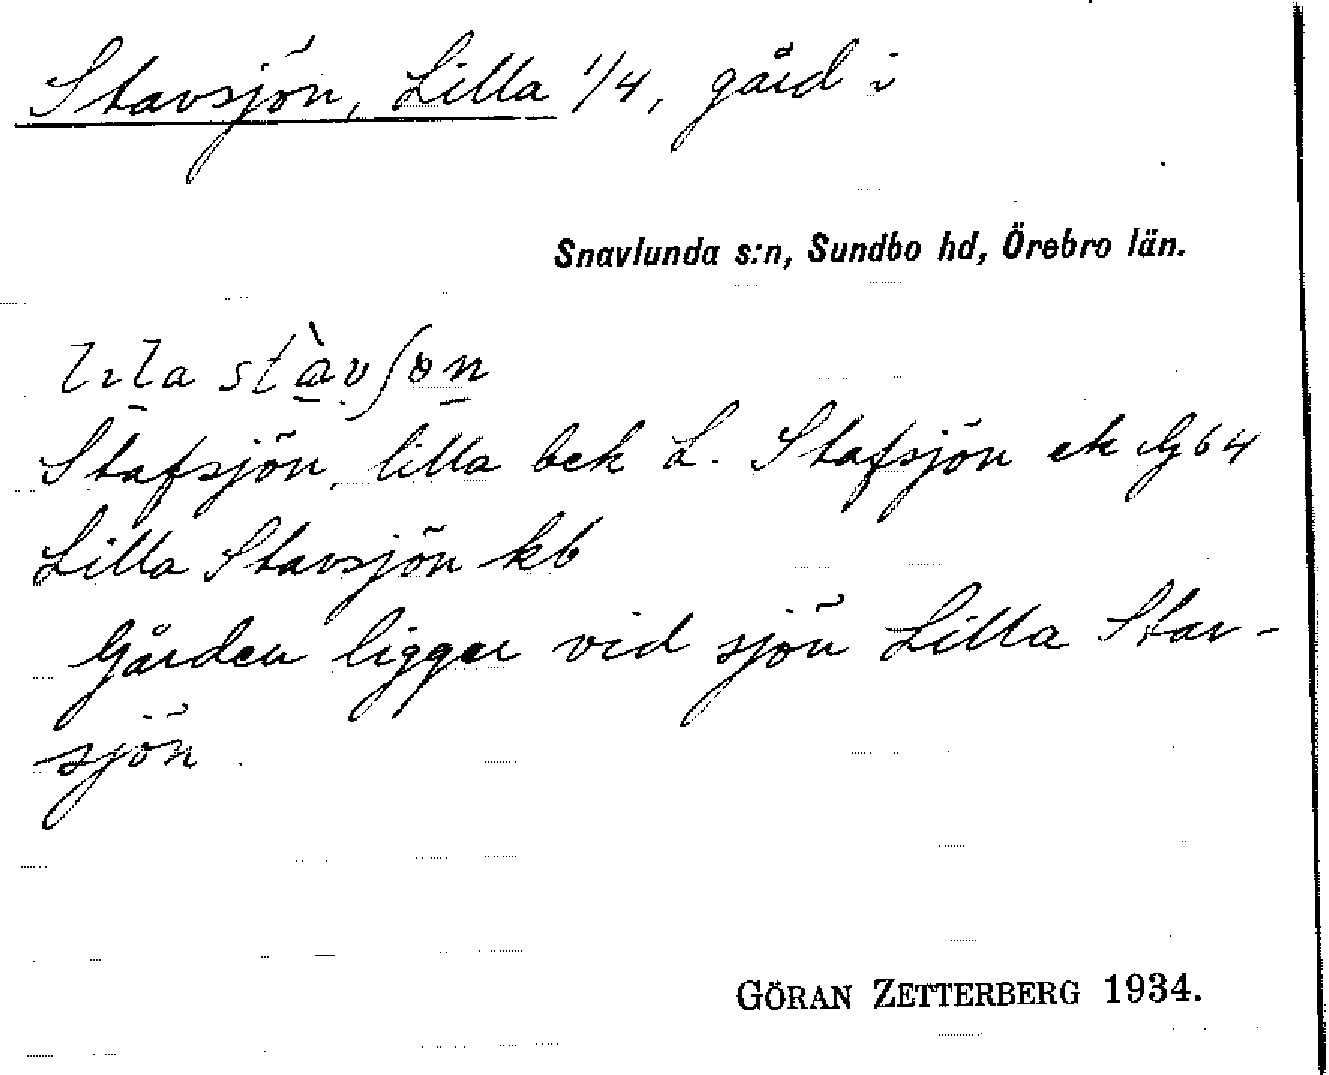 Stavsjön, Lilla 1/4, gård i
Snavlunda s:n, Sundbo hd, Örebro län.
lıla stàvʃɵn
Stafsjön, lilla bek L. Stafsjön ek G64
Lilla Stavsjön kb
Gården ligger vid sjön Lilla Stav-
sjön.
GÖRAN ZETTERBERG 1934.